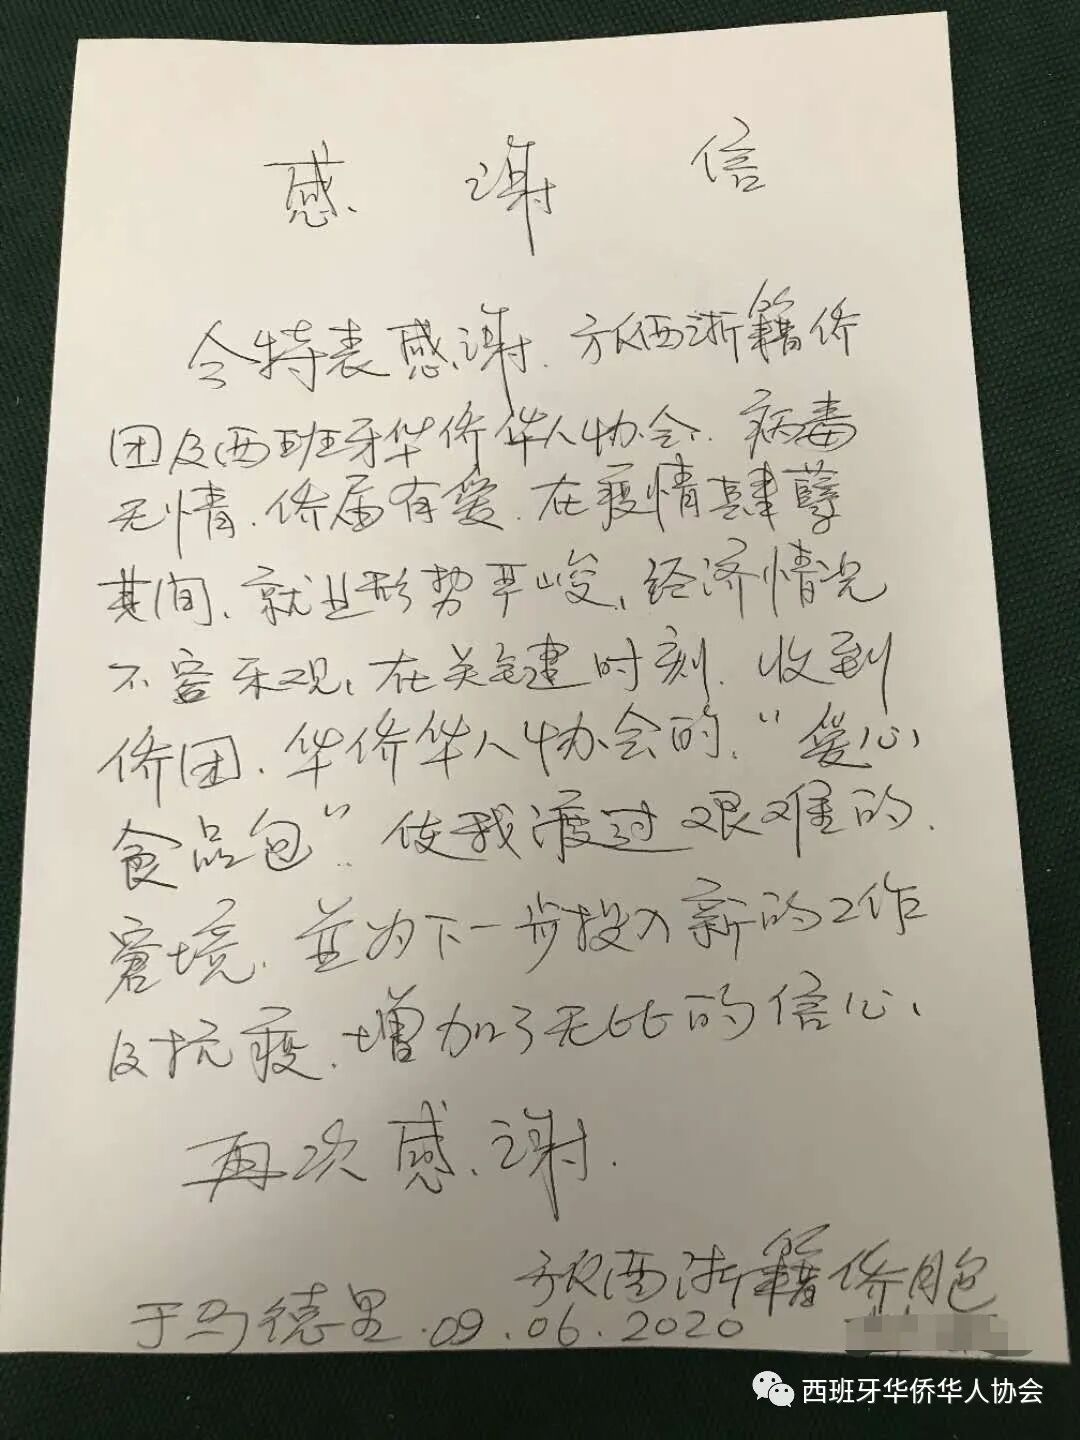 感谢信
今特表感谢.旅西浙籍侨
团及西班牙华侨华人协会.病毒
无情.侨届有爱.在疫情肆孽
其间、就业形势严峻、经济情况
不容乐观、在关键时刻.收到
侨团.华侨华人协会的.“爱心
食品包”.使我渡过艰难的.
窘境.並为下一步投入新的工作
及抗疫.增加了无比的信心、
再次感谢.
旅西浙籍侨胞
于马德里.09.06.2020
西班牙华侨华人协会